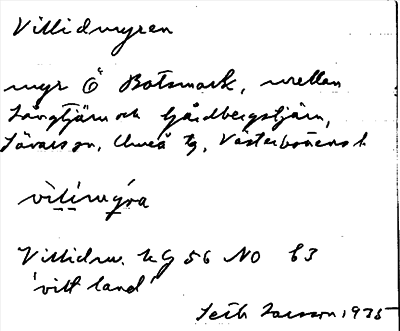 Villidmyren
myr Ö Botsmark, mellan
Långtjärn och Gårdbergstjärn,
Sävars sn, Umeå tg, Västerbottens l.
vìlímýra
Villidm. kg 56 NO b3
'vitt land'
Seth Larsson 1935